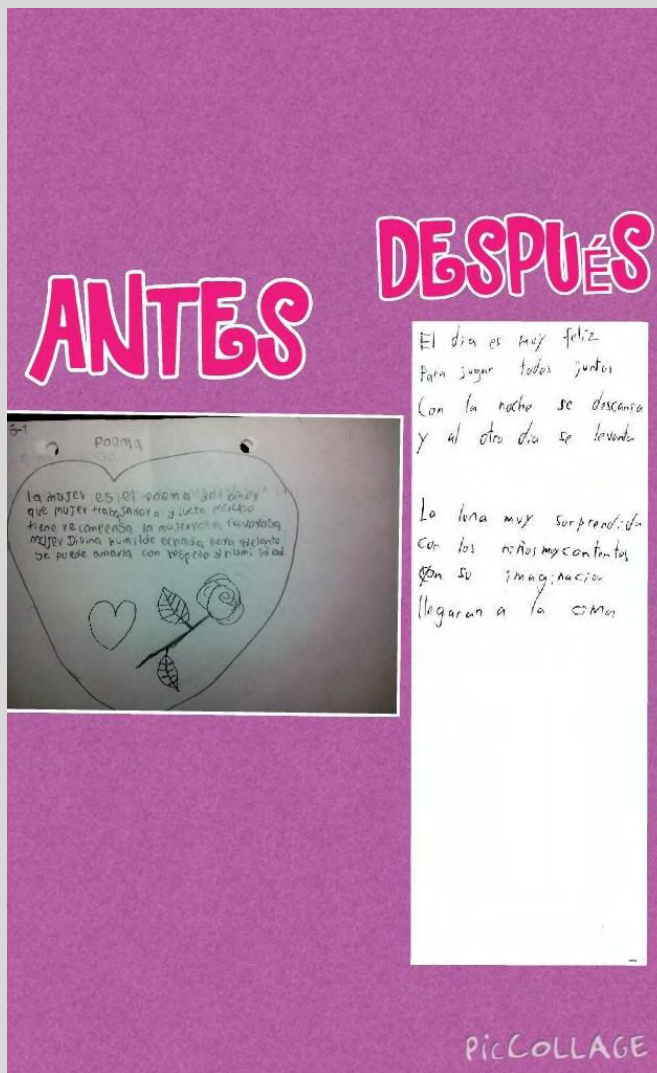 ANTES
DESPUÉS
Poema
la mujer es el poema del amor
que mujer trabajadora y lucha mucho
tiene recompensa la mujer
mujer Divina humilde para adelante
se puede amarla con respeto
El dia es muy feliz
Para jugar todos juntos
Con la noche se descansa
Y al otro dia se levanta
La luna muy sorprendida
con los niños muy contentos
con su imaginacion
llegaran a la cima
PicCOLLAGE